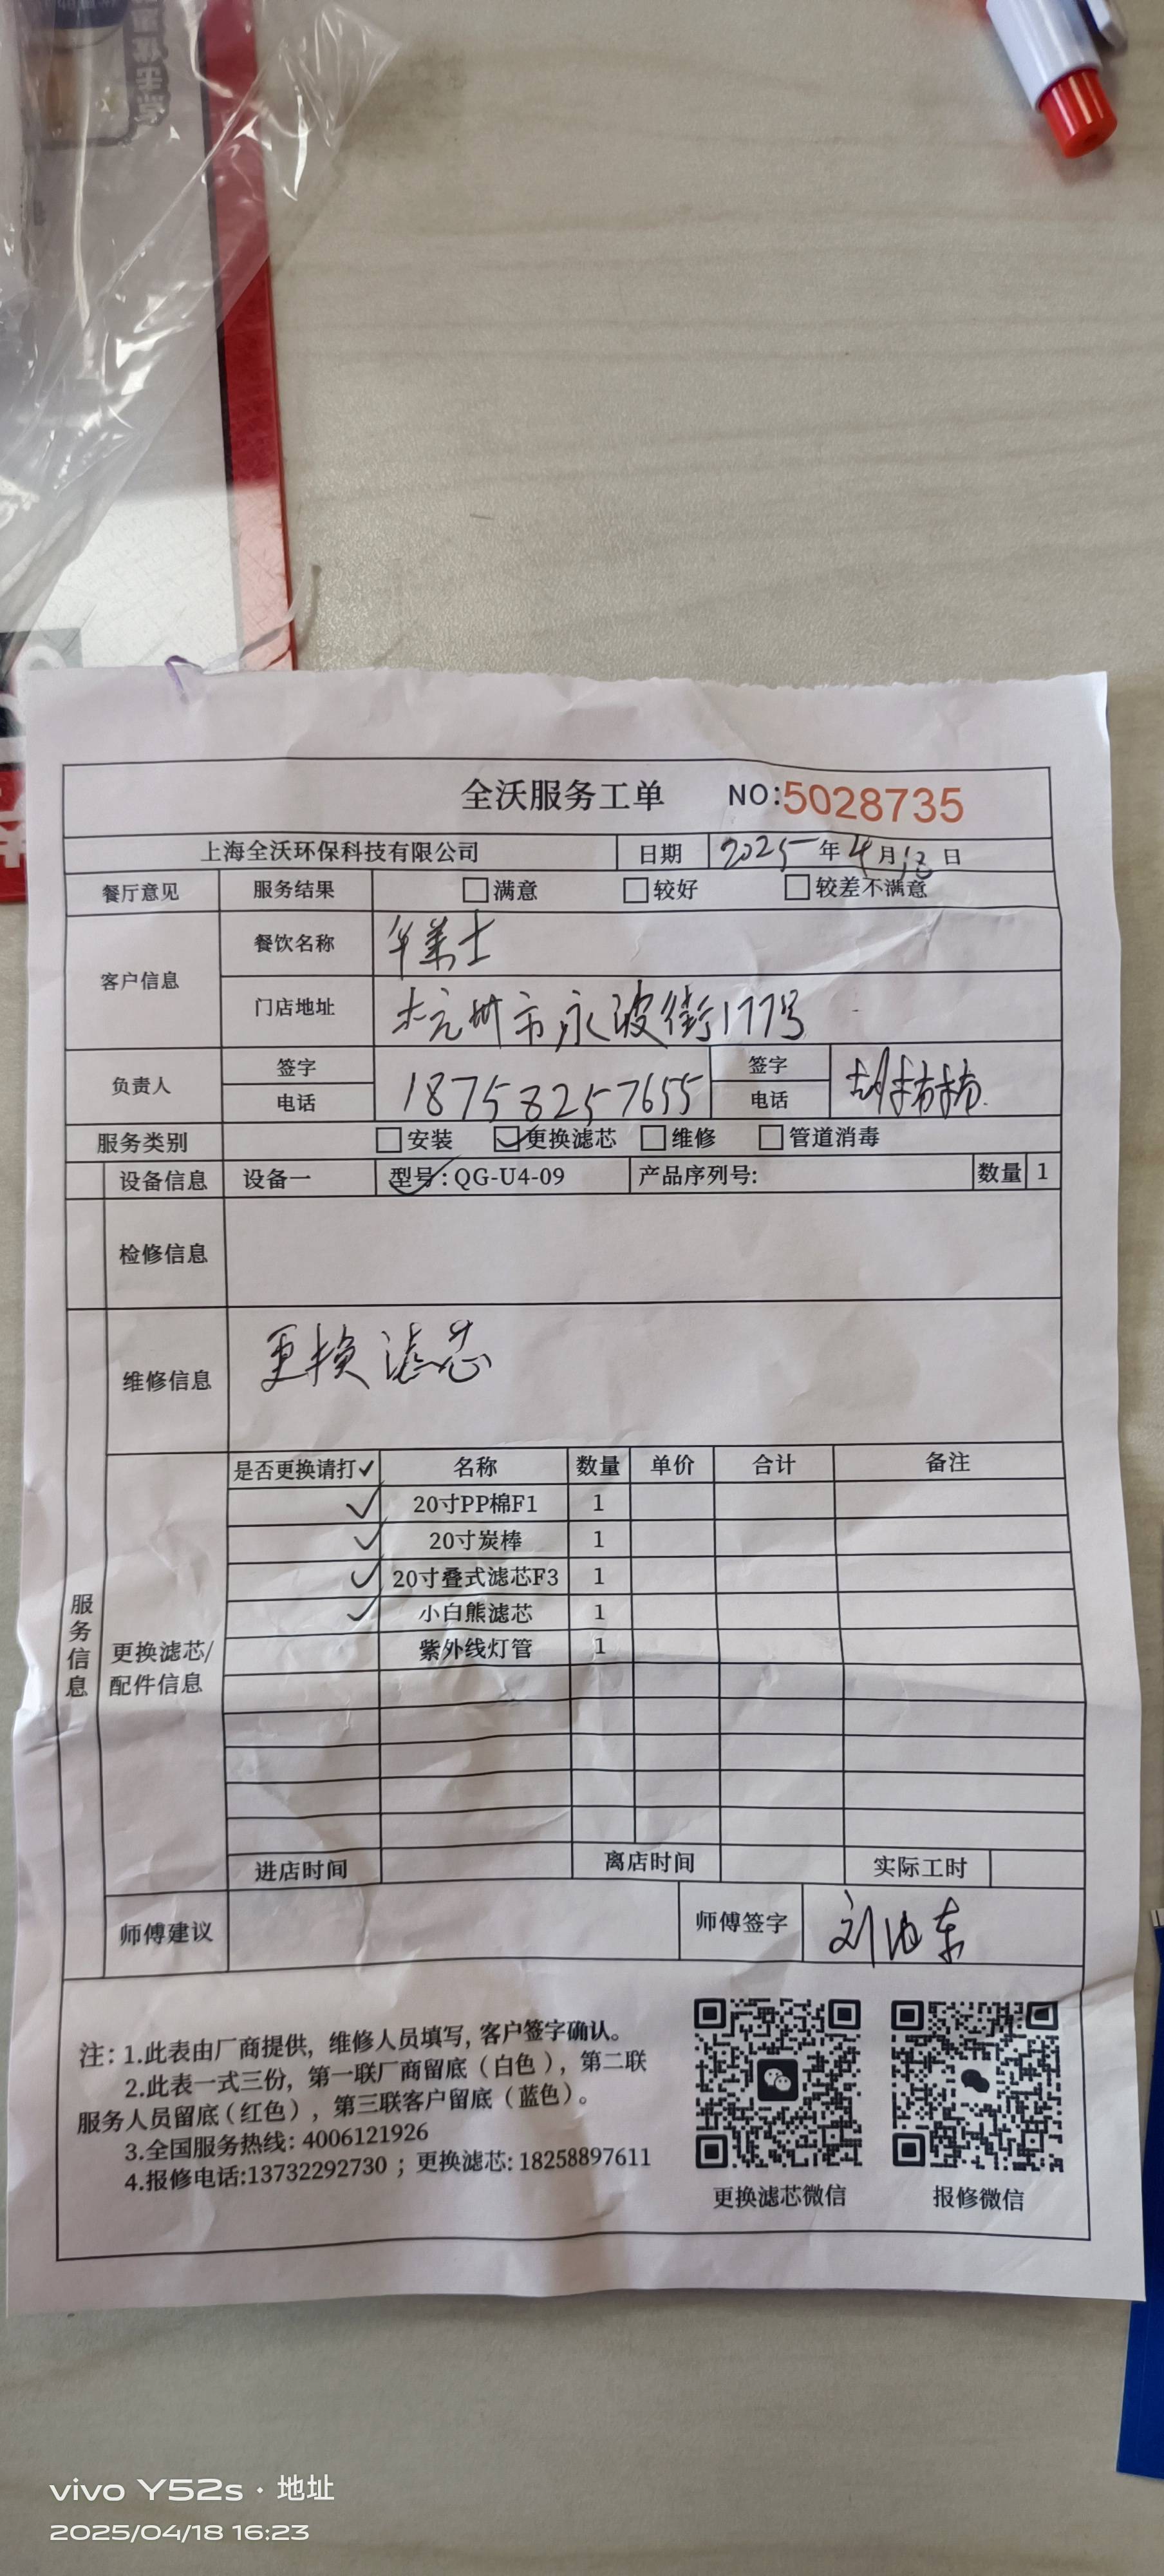 全沃服务工单 NO:5028735
上海全沃环保科技有限公司 日期 2025年4月18日
餐厅意见 服务结果 满意 较好 较差不满意
客户信息
餐饮名称 华莱士
门店地址 州市永波街177号
负责人
签字 签字
电话 18758257655 电话
服务类别 安装 更换滤芯 维修 管道消毒
设备信息 设备一 型号:QG-U4-09 产品序列号: 数量 1
检修信息
维修信息 更换滤芯
服务信息
更换滤芯/
配件信息
是否更换请打✓ 名称 数量 单价 合计 备注
✓ 20寸PP棉F1 1
✓ 20寸炭棒 1
✓ 20寸叠式滤芯F3 1
✓ 小白熊滤芯 1
紫外线灯管 1
进店时间 离店时间 实际工时
师傅建议 师傅签字 刘海东
注: 1.此表由厂商提供, 维修人员填写, 客户签字确认。
2.此表一式三份, 第一联厂商留底(白色), 第二联
服务人员留底(红色), 第三联客户留底(蓝色)。
3.全国服务热线: 4006121926
4.报修电话:13732292730 ; 更换滤芯: 18258897611
更换滤芯微信 报修微信
vivo Y52s · 地址
2025/04/18 16:23